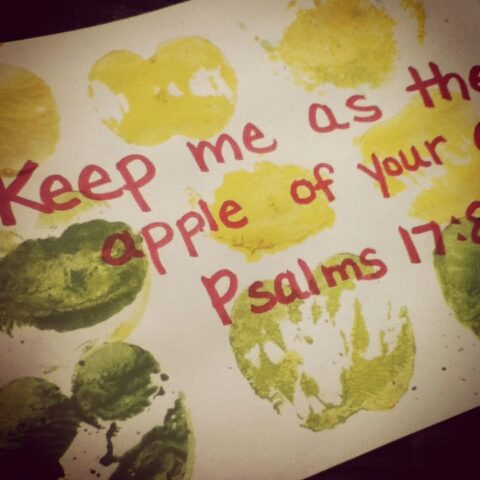 Keep me as the
apple of your
Psalms 17:8